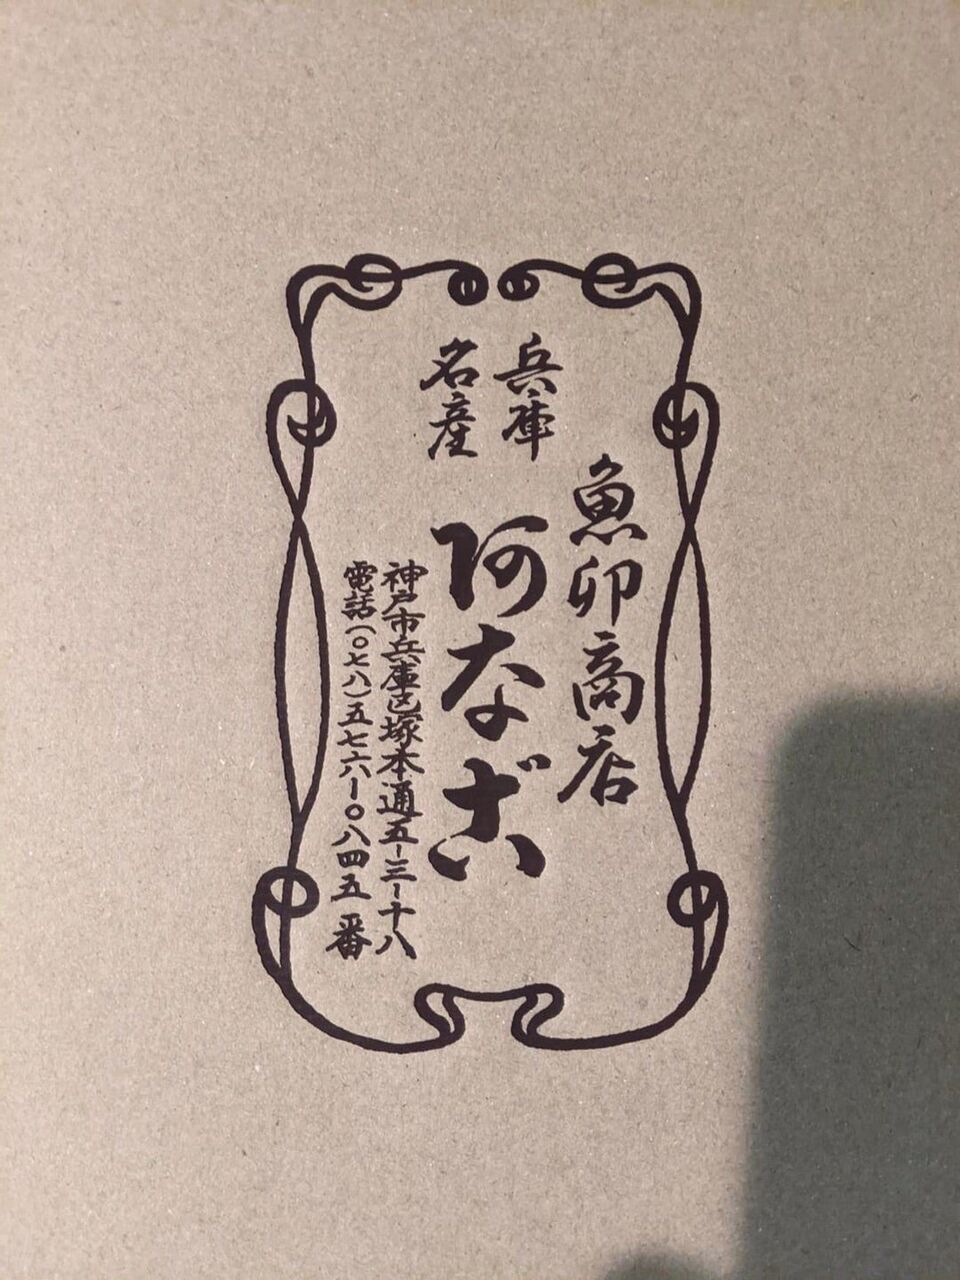 魚卯商店
兵庫
名産
阿なご
神戸市兵庫区塚本通五-三-十八
電話(〇七八)五七六-〇八四五番